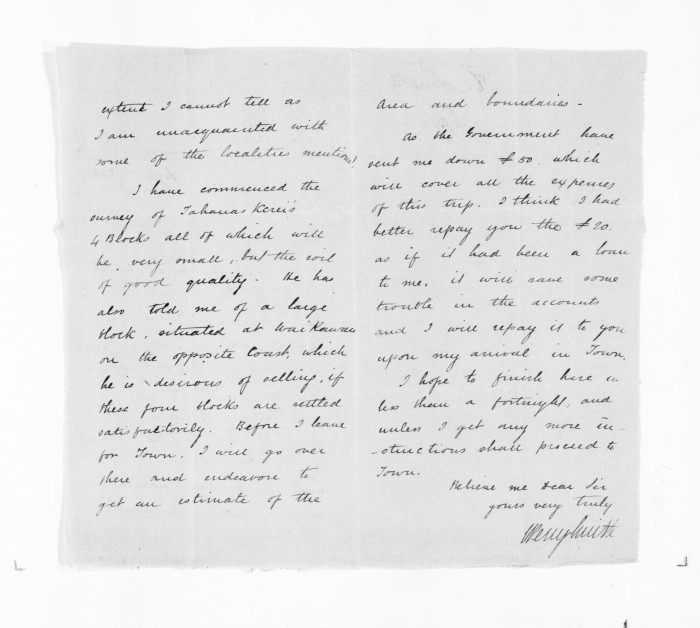 extent I cannot tell as
I am unacquainted with
some of the localities mentioned
I have commenced the
survey of Tahanas Kerei's
4 Blocks all of which will
be very small, but the soil
of good quality. He has
also told me of a large
block, situated at Waikawau
on the opposite Coast, which
he is desirous of selling, if
these four blocks are settled
satisfactorily. Before I leave
for Town, I will go over
there and endeavore to
get an estimate of the
Area and boundaries -
As the Government have
sent me down £50. which
will cover all the expenses
of this trip. I think I had
better repay you the £20.
as if it had been a loan
to me, it will save some
trouble in the accounts
and I will repay it to you
upon my arrival in Town.
I hope to finish here in
less than a fortnight, and
unless I get any more in-
-structions shall proceed to
Town.
Believe me Dear Sir
yours very truly